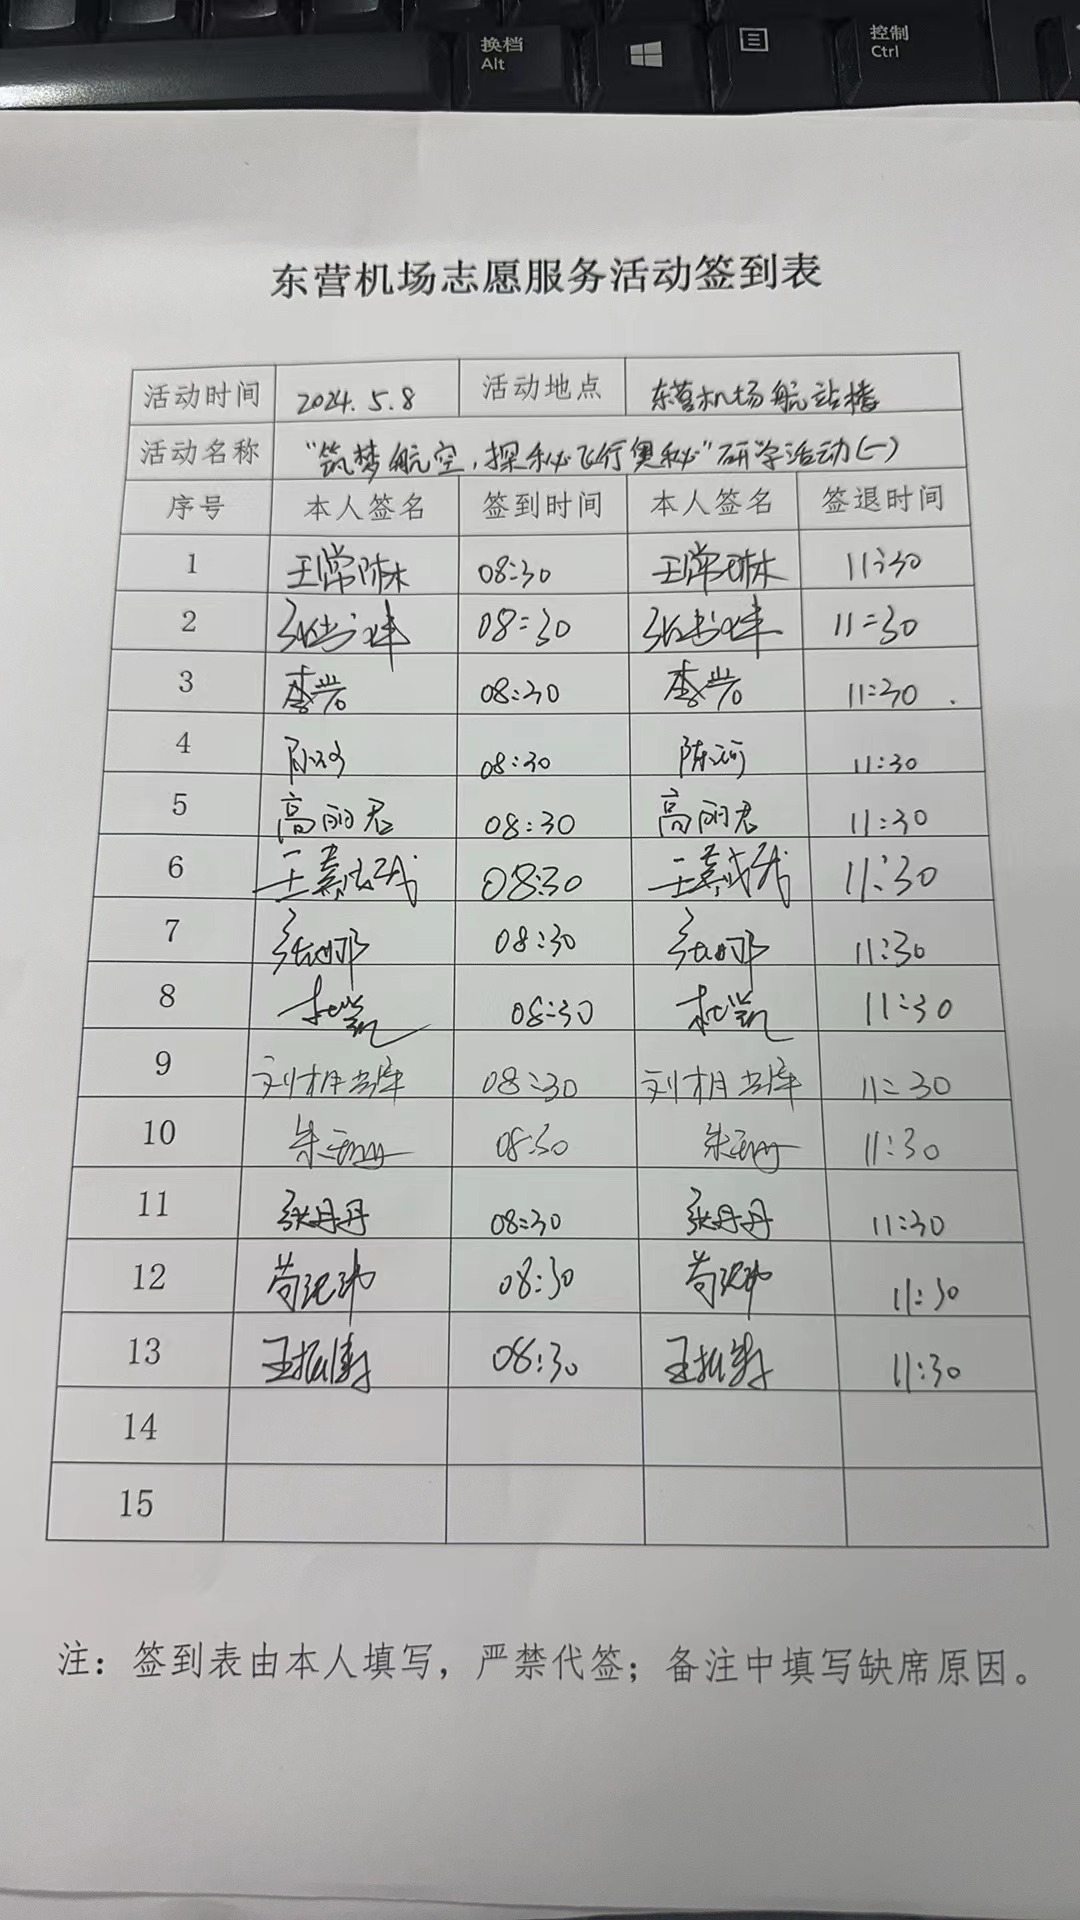 换档
Alt
控制
Ctrl
东营机场志愿服务活动签到表
活动时间 2024.5.8 活动地点 东营机场航站楼
活动名称 "筑梦航空,探秘飞行奥秘"研学活动(一)
序号 本人签名 签到时间 本人签名 签退时间
1 08:30 11:30
2 08:30 11:30
3 08:30 11:30
4 08:30 陈河 11:30
5 高丽君 08:30 高丽君 11:30
6 08:30 11:30
7 08:30 11:30
8 08:30 11:30
9 08:30 11:30
10 08:30 11:30
11 张丹丹 08:30 张丹丹 11:30
12 08:30 11:30
13 08:30 11:30
14
15
注：签到表由本人填写，严禁代签；备注中填写缺席原因。